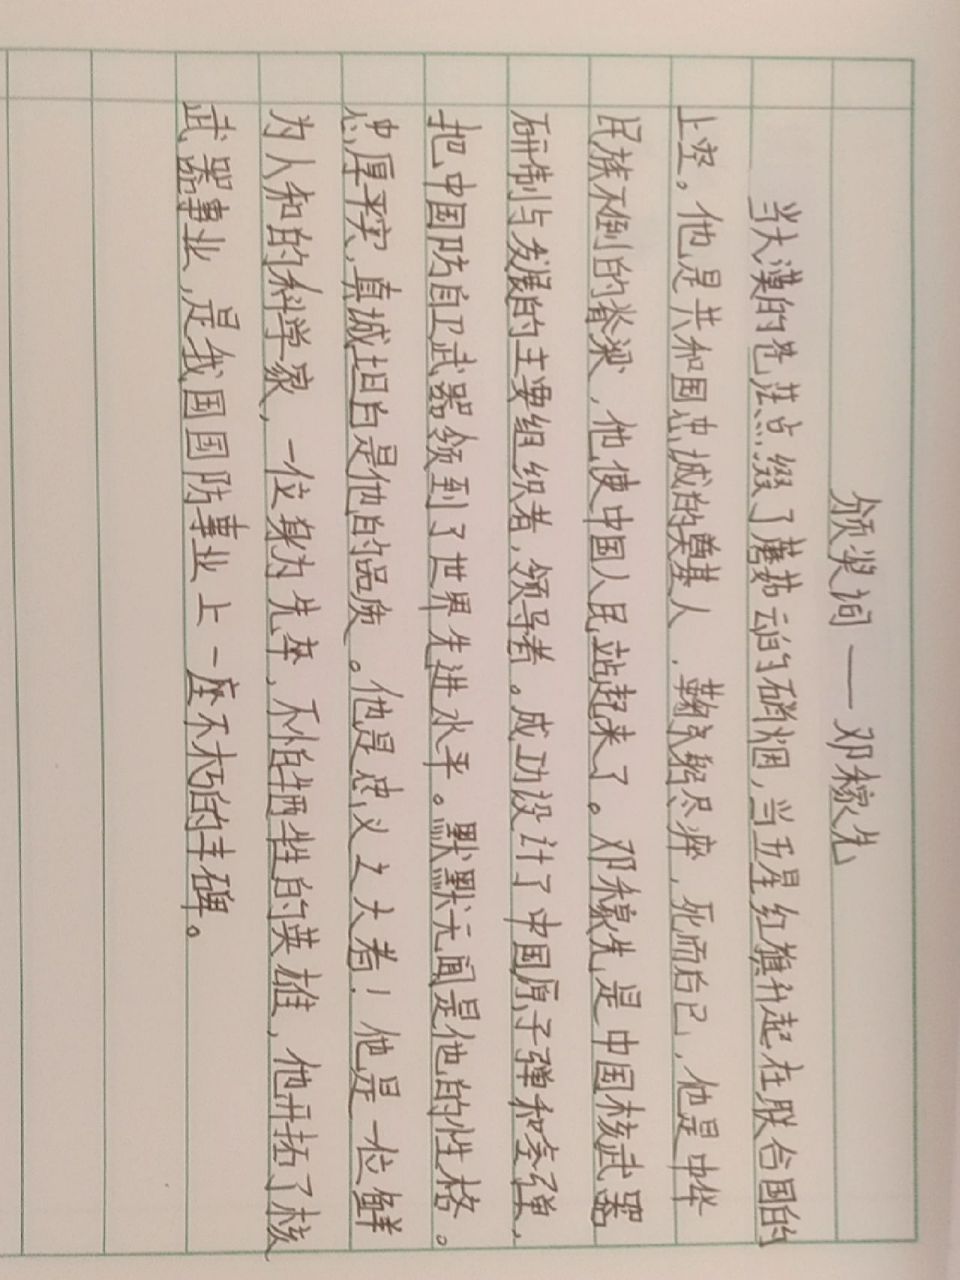 颁奖词——邓稼先
当大漠的苍茫点缀了蘑菇云的硝烟,当五星红旗升起在联合国的
上空。他是共和国忠诚的奠基人,鞠躬尽瘁,死而后已,他是中华
民族不倒的脊梁,他使中国人民站起来了。邓稼先是中国核武器
研制与发展的主要组织者,领导者。成功设计了中国原子弹和氢弹,
把中国防自卫武器领到了世界先进水平。默默无闻是他的性格。
忠厚平实,真诚坦白是他的品质。他是忠义之大者!他是一位鲜
为人知的科学家,一位身为先卒,不怕牺牲的英雄,他开拓了核
武器事业,是我国国防事业上一座不朽的丰碑。